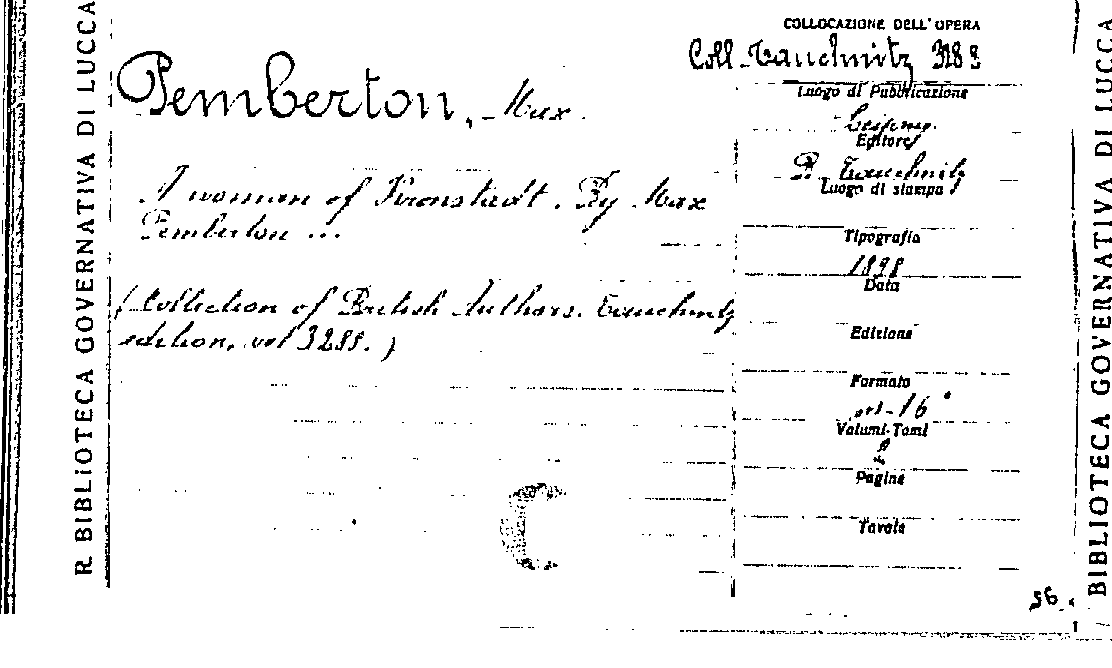 R. BIBLIOTECA GOVERNATIVA DI LUCCA
Pemberton, Max
A woman of Kronstadt. By Max
Pemberton ...
(Collection of British Authors. Tauchnitz
edition, vol 3288.)
C
COLLOCAZIONE DELL' OPERA
Coll. Tauchnitz 3288
Luogo di Pubblicazione
Editore
B. Tauchnitz
Luogo di stampa
Tipografia
1898
Data
Edizione
Formato
16°
Volumi-Tomi
Pagine
Tavole
56
BIBLIOTECA GOVERNATIVA DI LUCCA